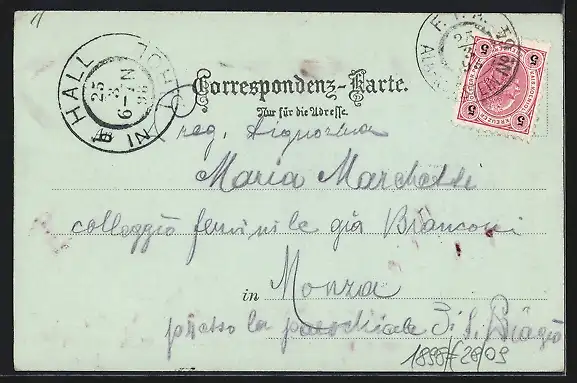 HALL IN TIROL
25 8 98
6-7 N
Correspondenz-Karte.
Nur für die Adresse.
5 5 5 5
KREUZER
reg. Signorina
Maria Marchetti
collegio feminile già Bianconi
in Monza
presso la parochiale di S. Biagio
1898/